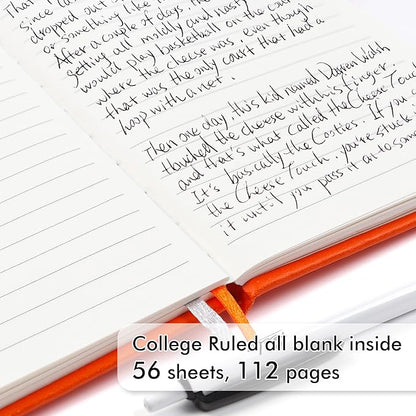 That
since
dropped out
or something like
After a couple of days, the
getting all mildly and nasty
would play basketball on the court
where the cheese was, even though
that was the only court that had a
hoop with a net.
Then one day, this kid named Darren Walsh
touched the cheese with his finger,
and that's what called the Cheese Touch
It's basically the Cooties. If you g
the Cheese Touch, you're stuck
it until you pass it on to some
College Ruled all blank inside
56 sheets, 112 pages